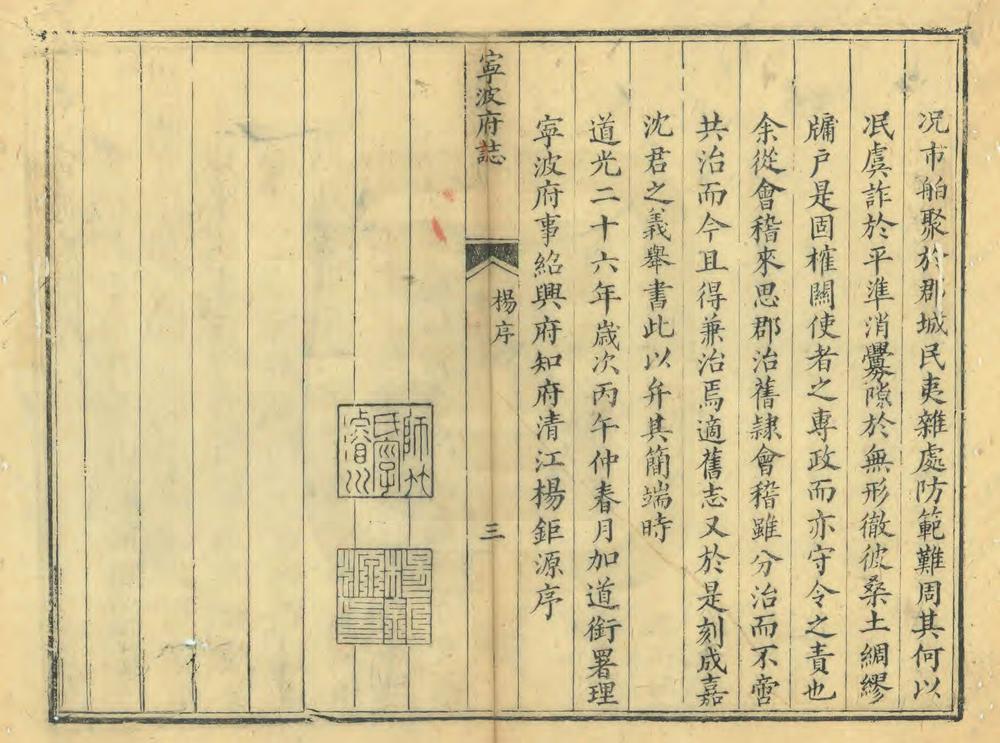 况市舶聚於郡城民夷雜處防範難周其何以
泯虞詐於平準消釁隙於無形徹彼桑土綢繆
牖戶是固榷關使者之專政而亦守令之責也
余從會稽來思郡治舊隸會稽雖分治而不啻
共治而今且得兼治焉適舊志又於是刻成嘉
沈君之義舉書此以弁其簡端時
道光二十六年歲次丙午仲春月加道銜署理
寧波府事紹興府知府清江楊鉅源序
寧波府誌
楊序
三